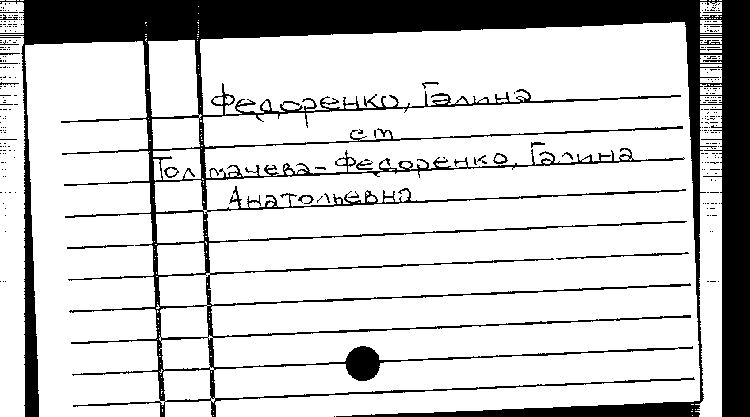 Федоренко, Галина
ст
Толмачева-Федоренко, Галина
Анатольевна